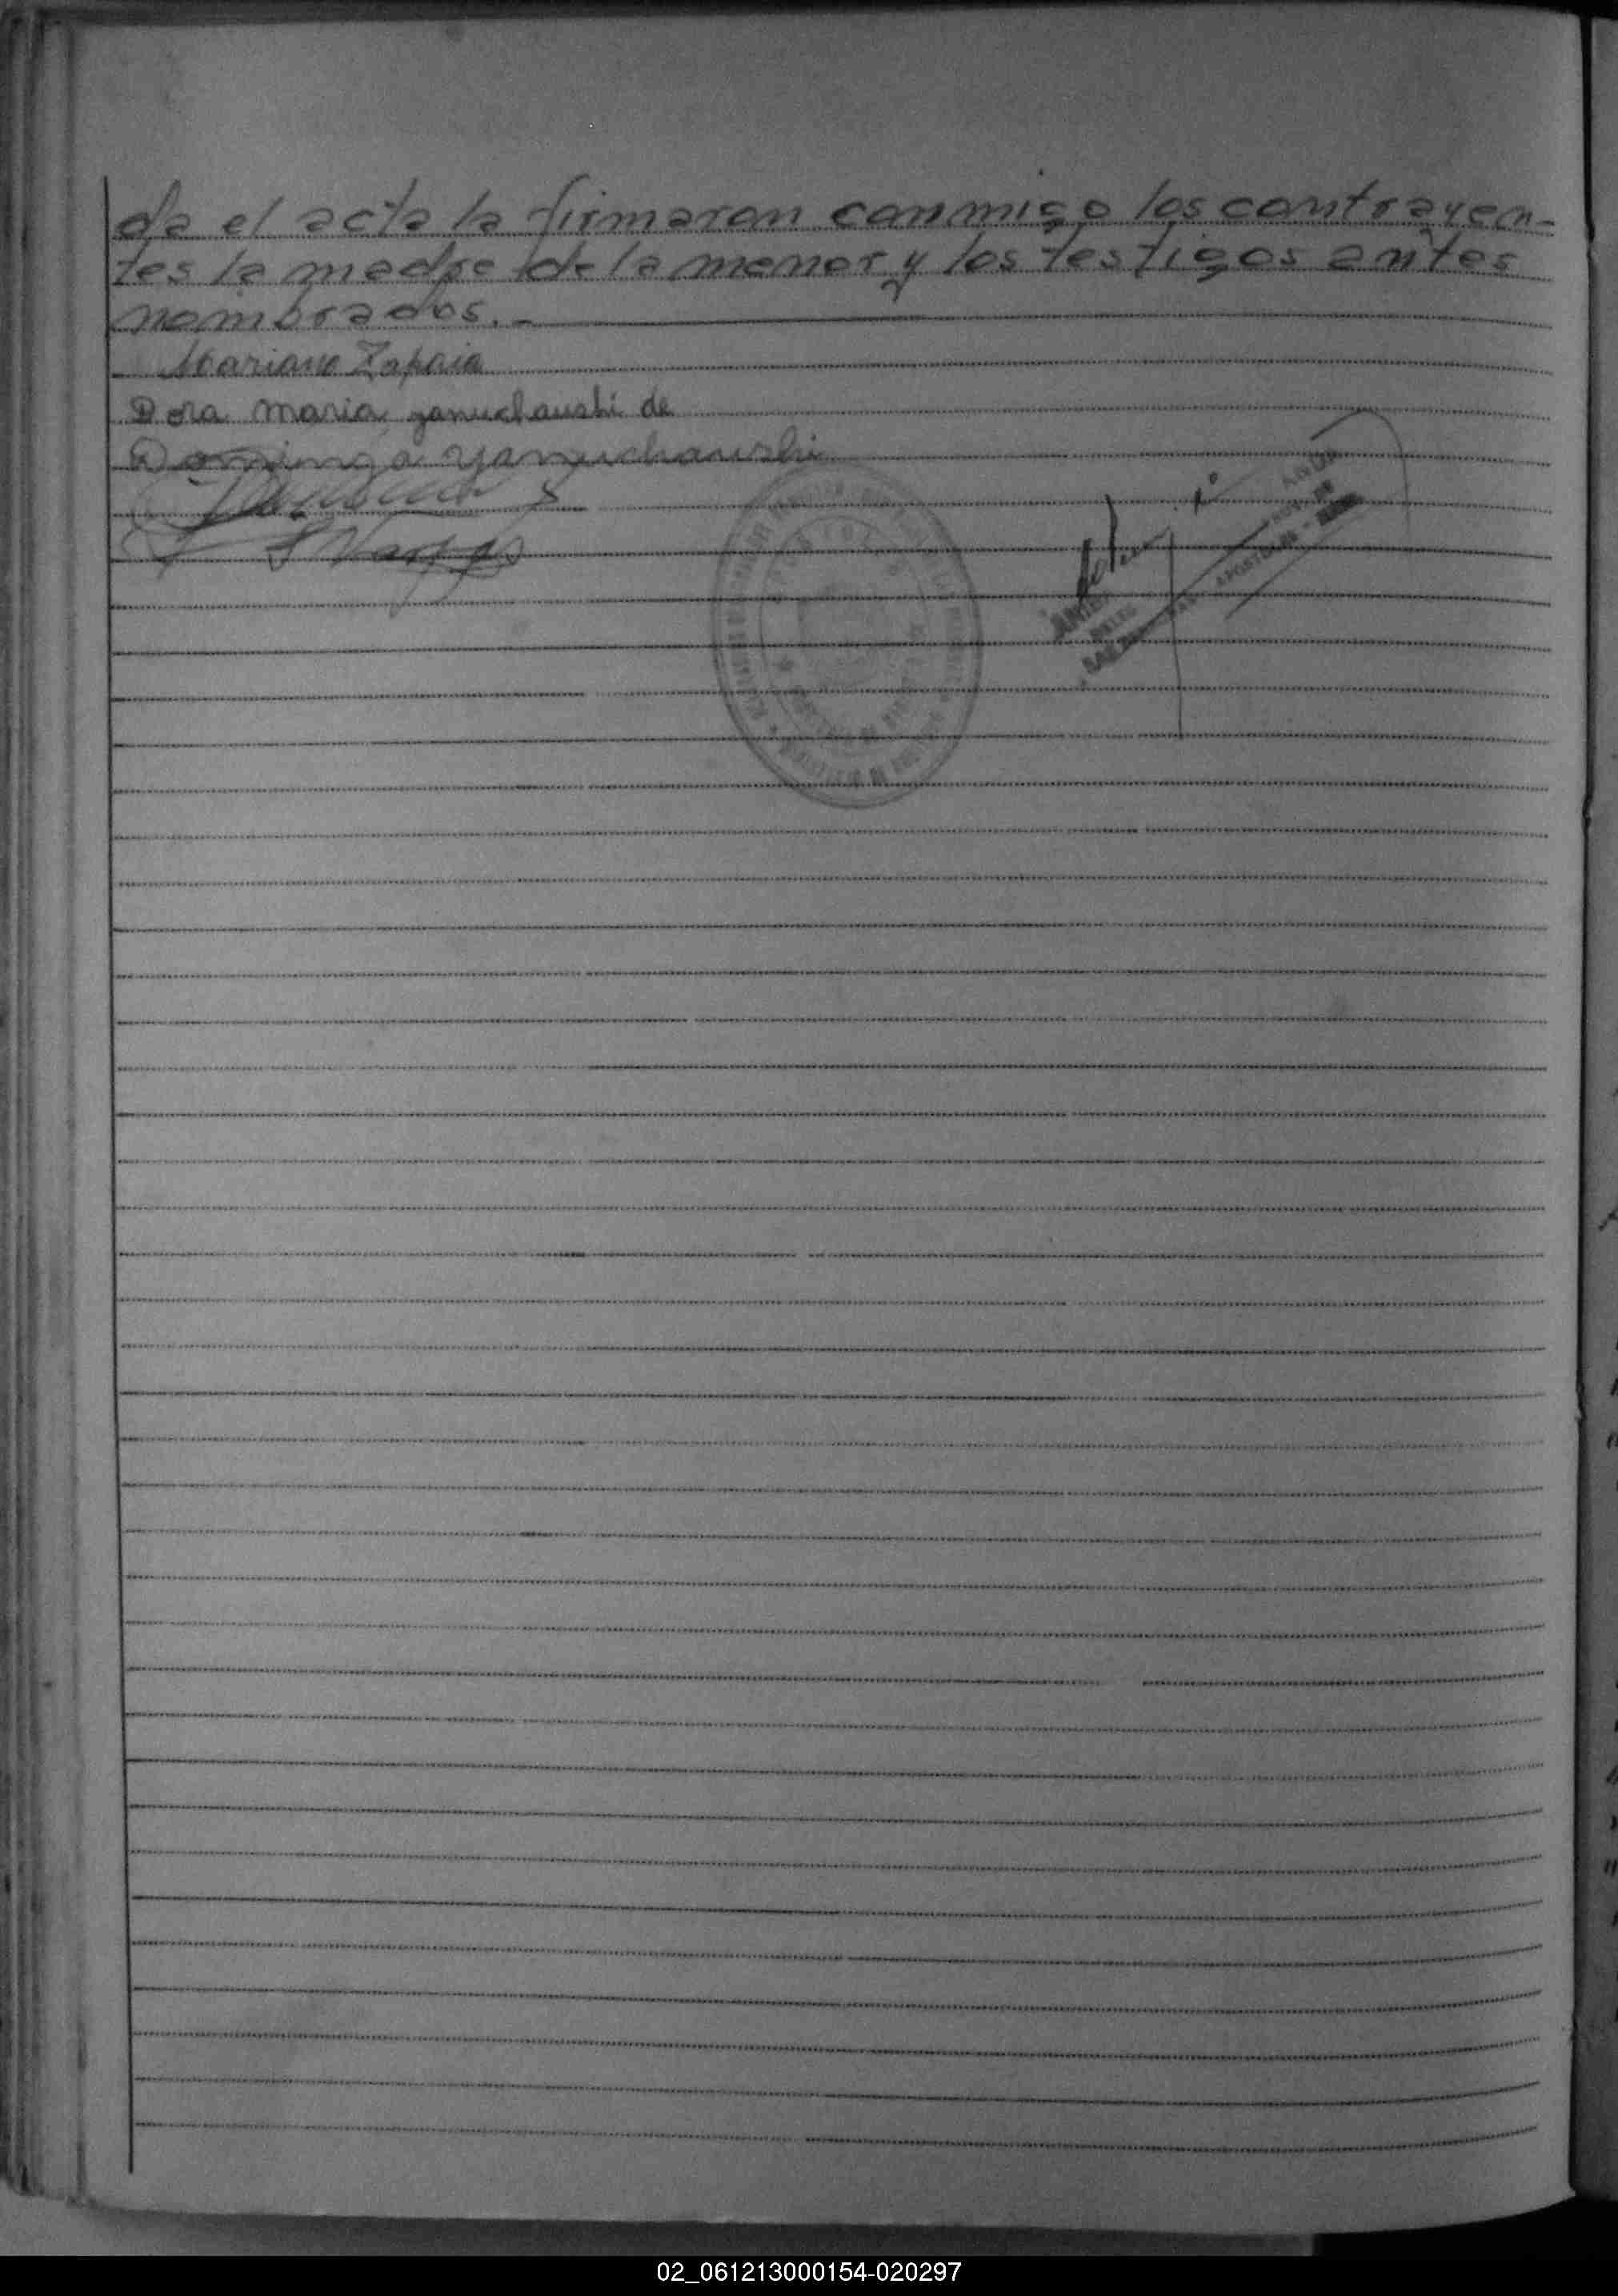 da el acta la firmaron conmigo los contrayen-
tes la madre de la menor y los testigos antes
nombrados.-
Mariano Zapaia
Dora maria yanuchauski de
Dominga yanuchauski
APOSTOLES -
02_061213000154-020297